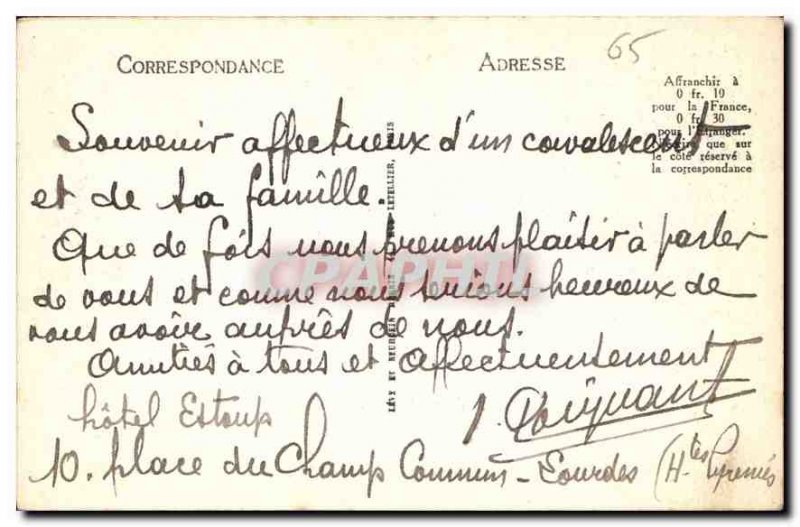 65
CORRESPONDANCE
ADRESSE
Affranchir à
0 fr. 10
pour la France,
0 fr. 30
pour l'étranger.
que sur
le côté réservé à
la correspondance
Souvenir affectueux d'un convalescent
et de sa famille.
Que de fois nous prenons plaisir à parler
de vous et comme nous serions heureux de
vous avoir auprès de nous.
Amitiés à tous et affectueusement
hôtel Estoup
10. place du Champ Commun - Lourdes (Htes Pyrénées
LÉVY ET NEURDEIN RÉUNIS LETELLIER, PARIS
CPAPHIL